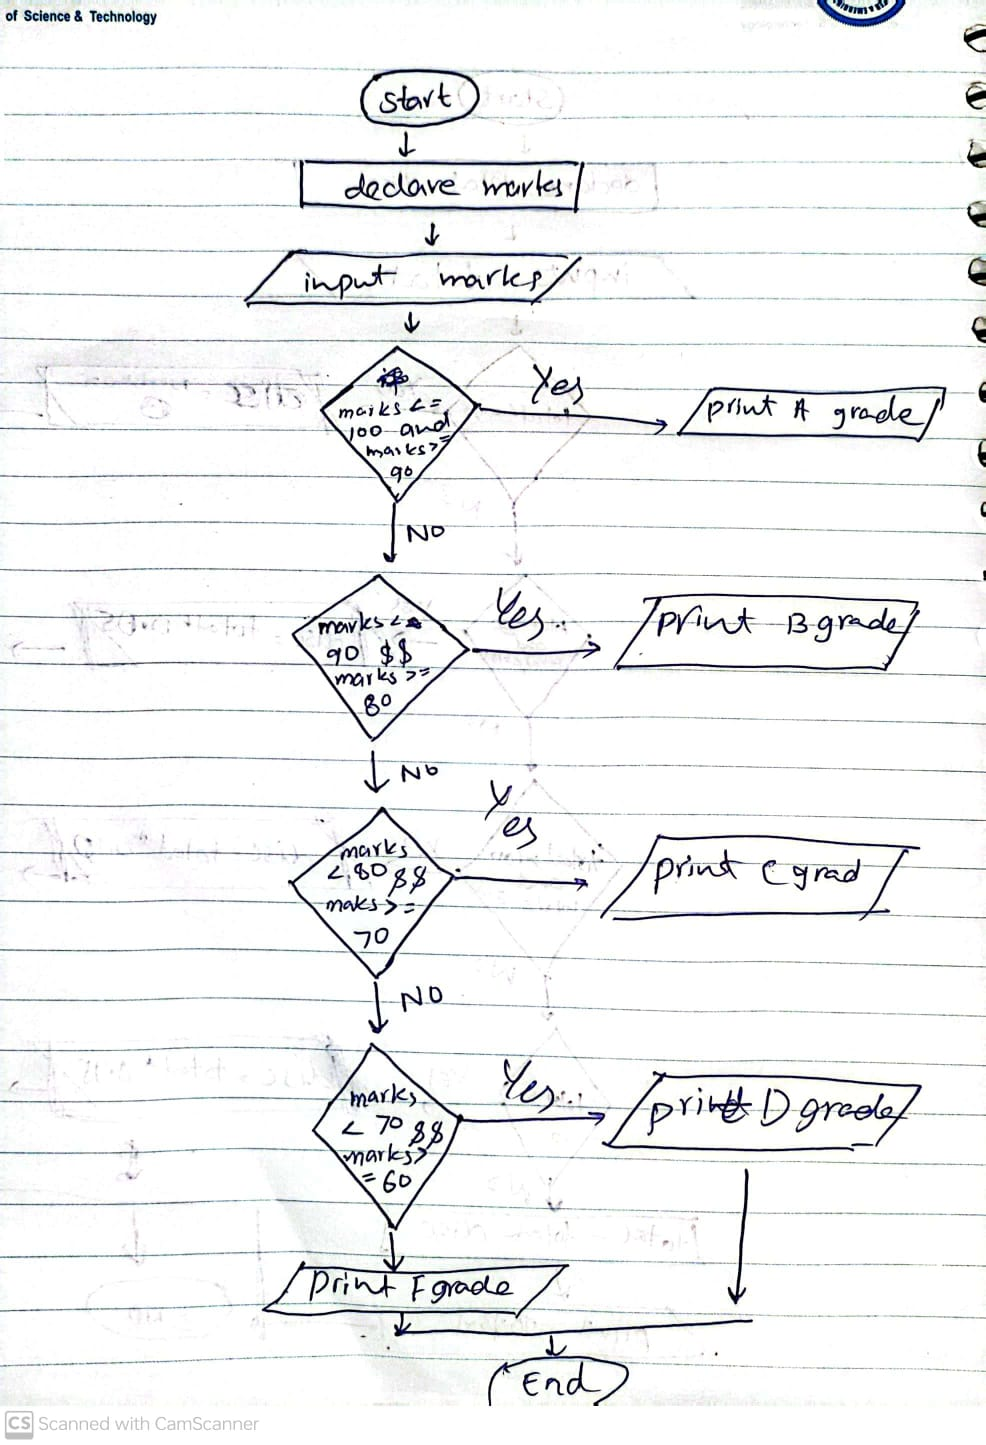 of Science & Technology
start
declare marks
input marks
marks <=
100 and
marks >=
90
Yes
print A grade
NO
marks <
90 $$
marks >=
80
Yes
print B grade
NO
marks
< 80 $$
maks >=
70
Yes
print C grad
NO
marks
< 70 $$
marks >
= 60
Yes
print D grade
print F grade
End
CS Scanned with CamScanner